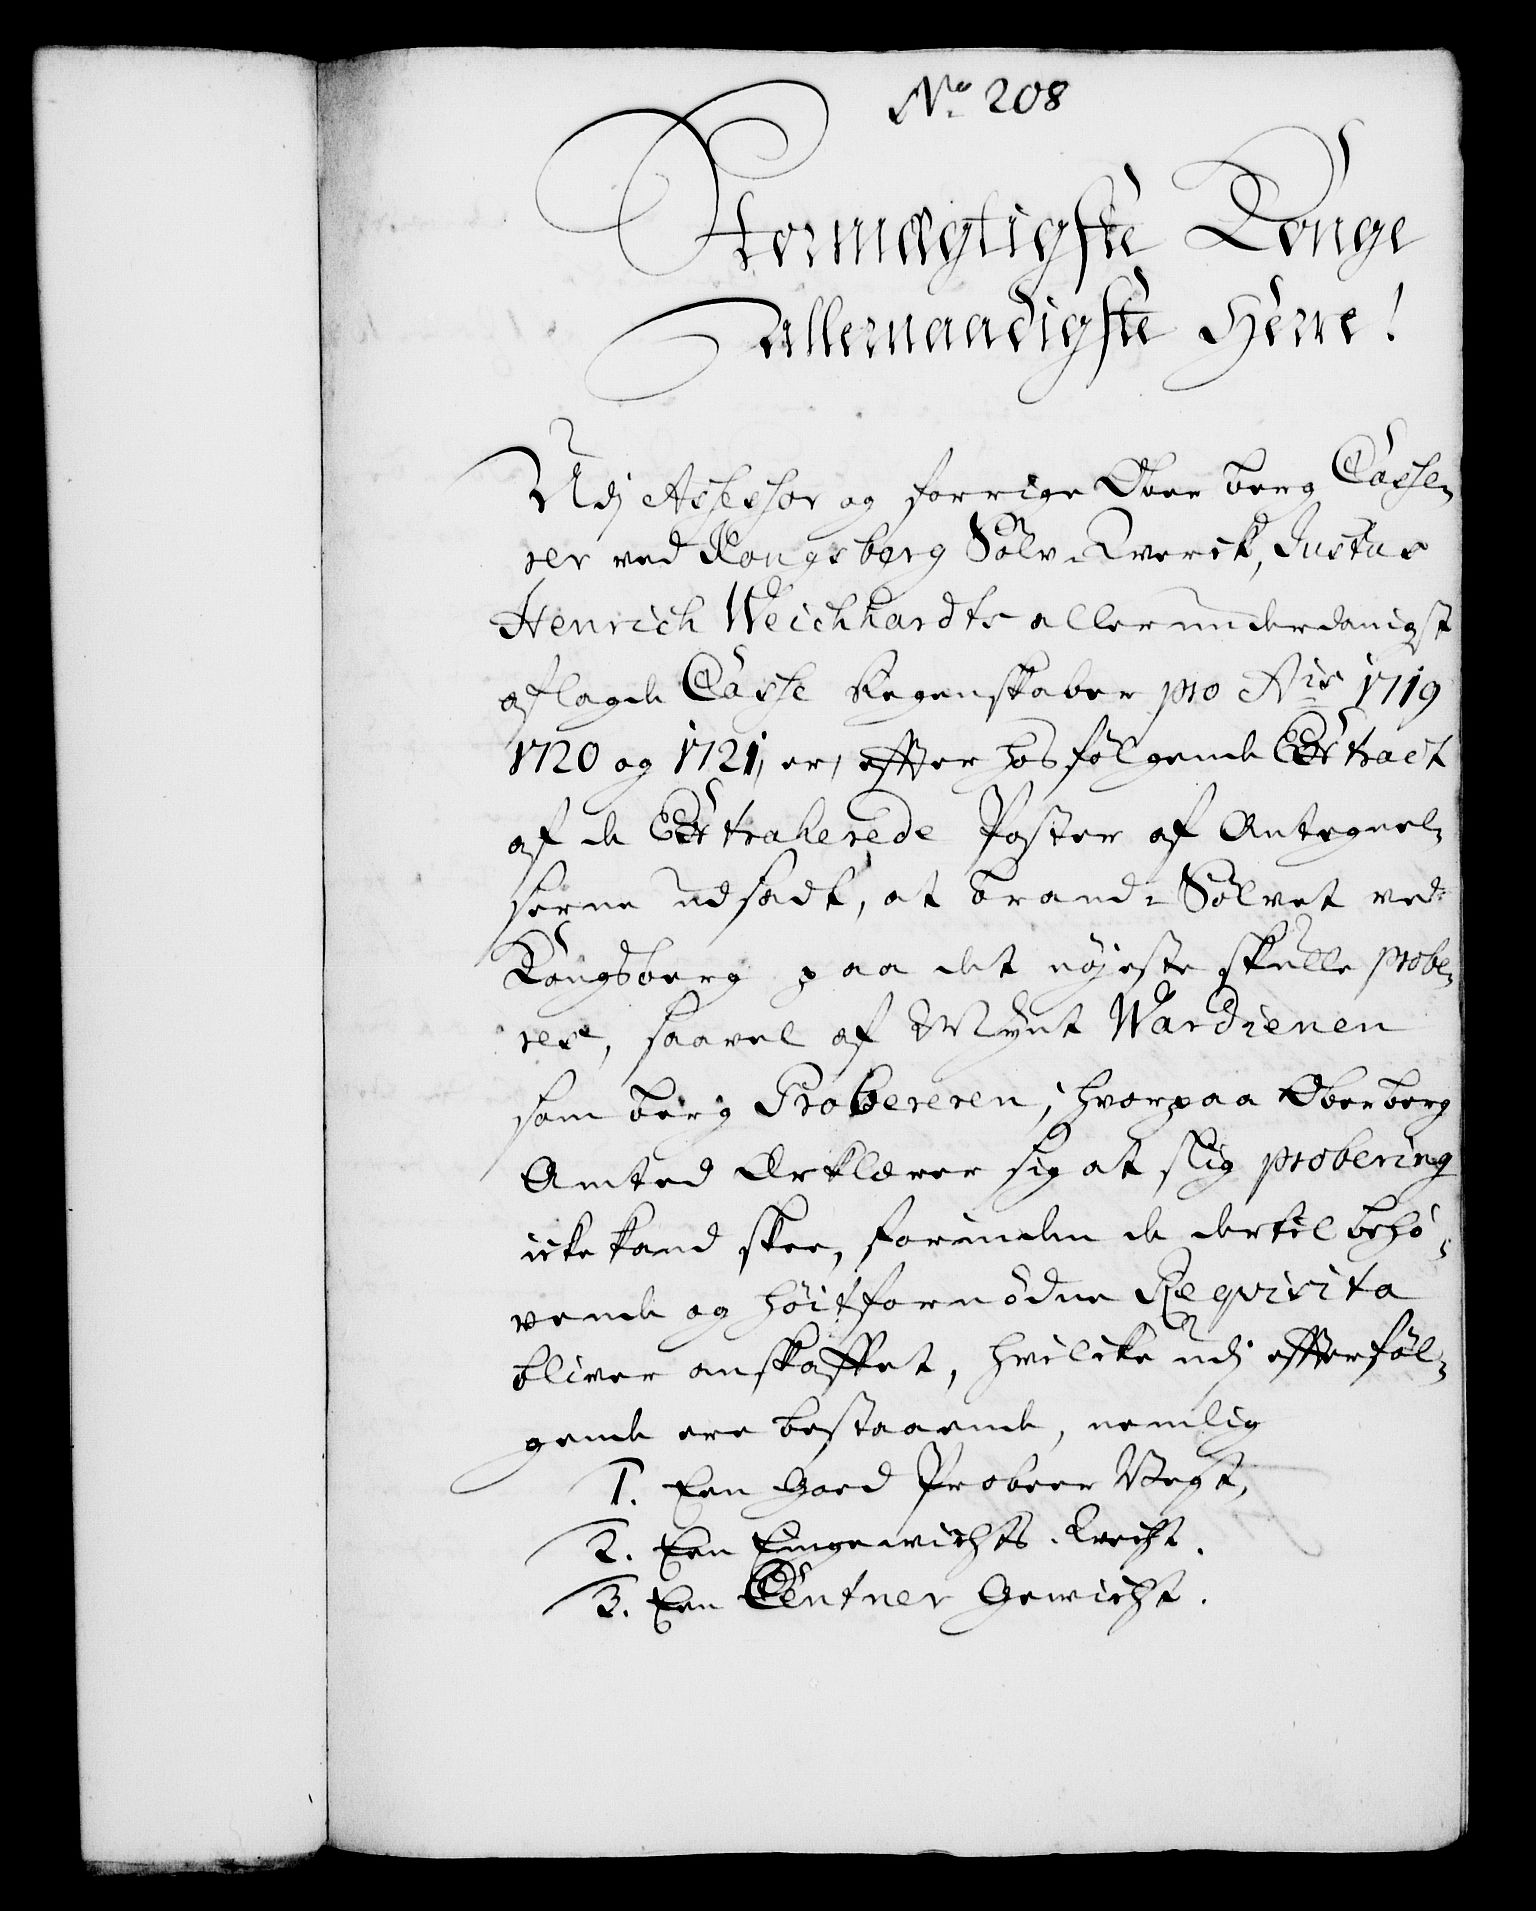 No. 208
Stormægtigste Konge
allernaadigste Herre!
Udj Assessor og forrige Ober Berg Casse-
rer ved Kongsberg Sølv-Verck, Justus
Henrich Weichhardts allerunderdanigst
aflagde Casse Regenskaber pro Ais 1719
1720 og 1721, er, effter hosfølgende Extract
af de Extraherede Poster af Antegnel-
serne udsadt, at brand-Sølvet ved
Kongsberg paa det nøjeste skulle probe-
res, saavel af Mynt Wardienen
som berg Probereren; hvorpaa Oberberg
Amted Erklærer sig at slig probering
icke kand skee, forinden de dertil behø-
vende og høitfornødne Reqvisita
bliver anskaffet, hvilcke udj effterføl-
gende ere bestaaende, nemlig
1. Een Goed Probeer Vegt,
2. Een Eingewichts-Vecht.
3. Een Centner Gewicht.